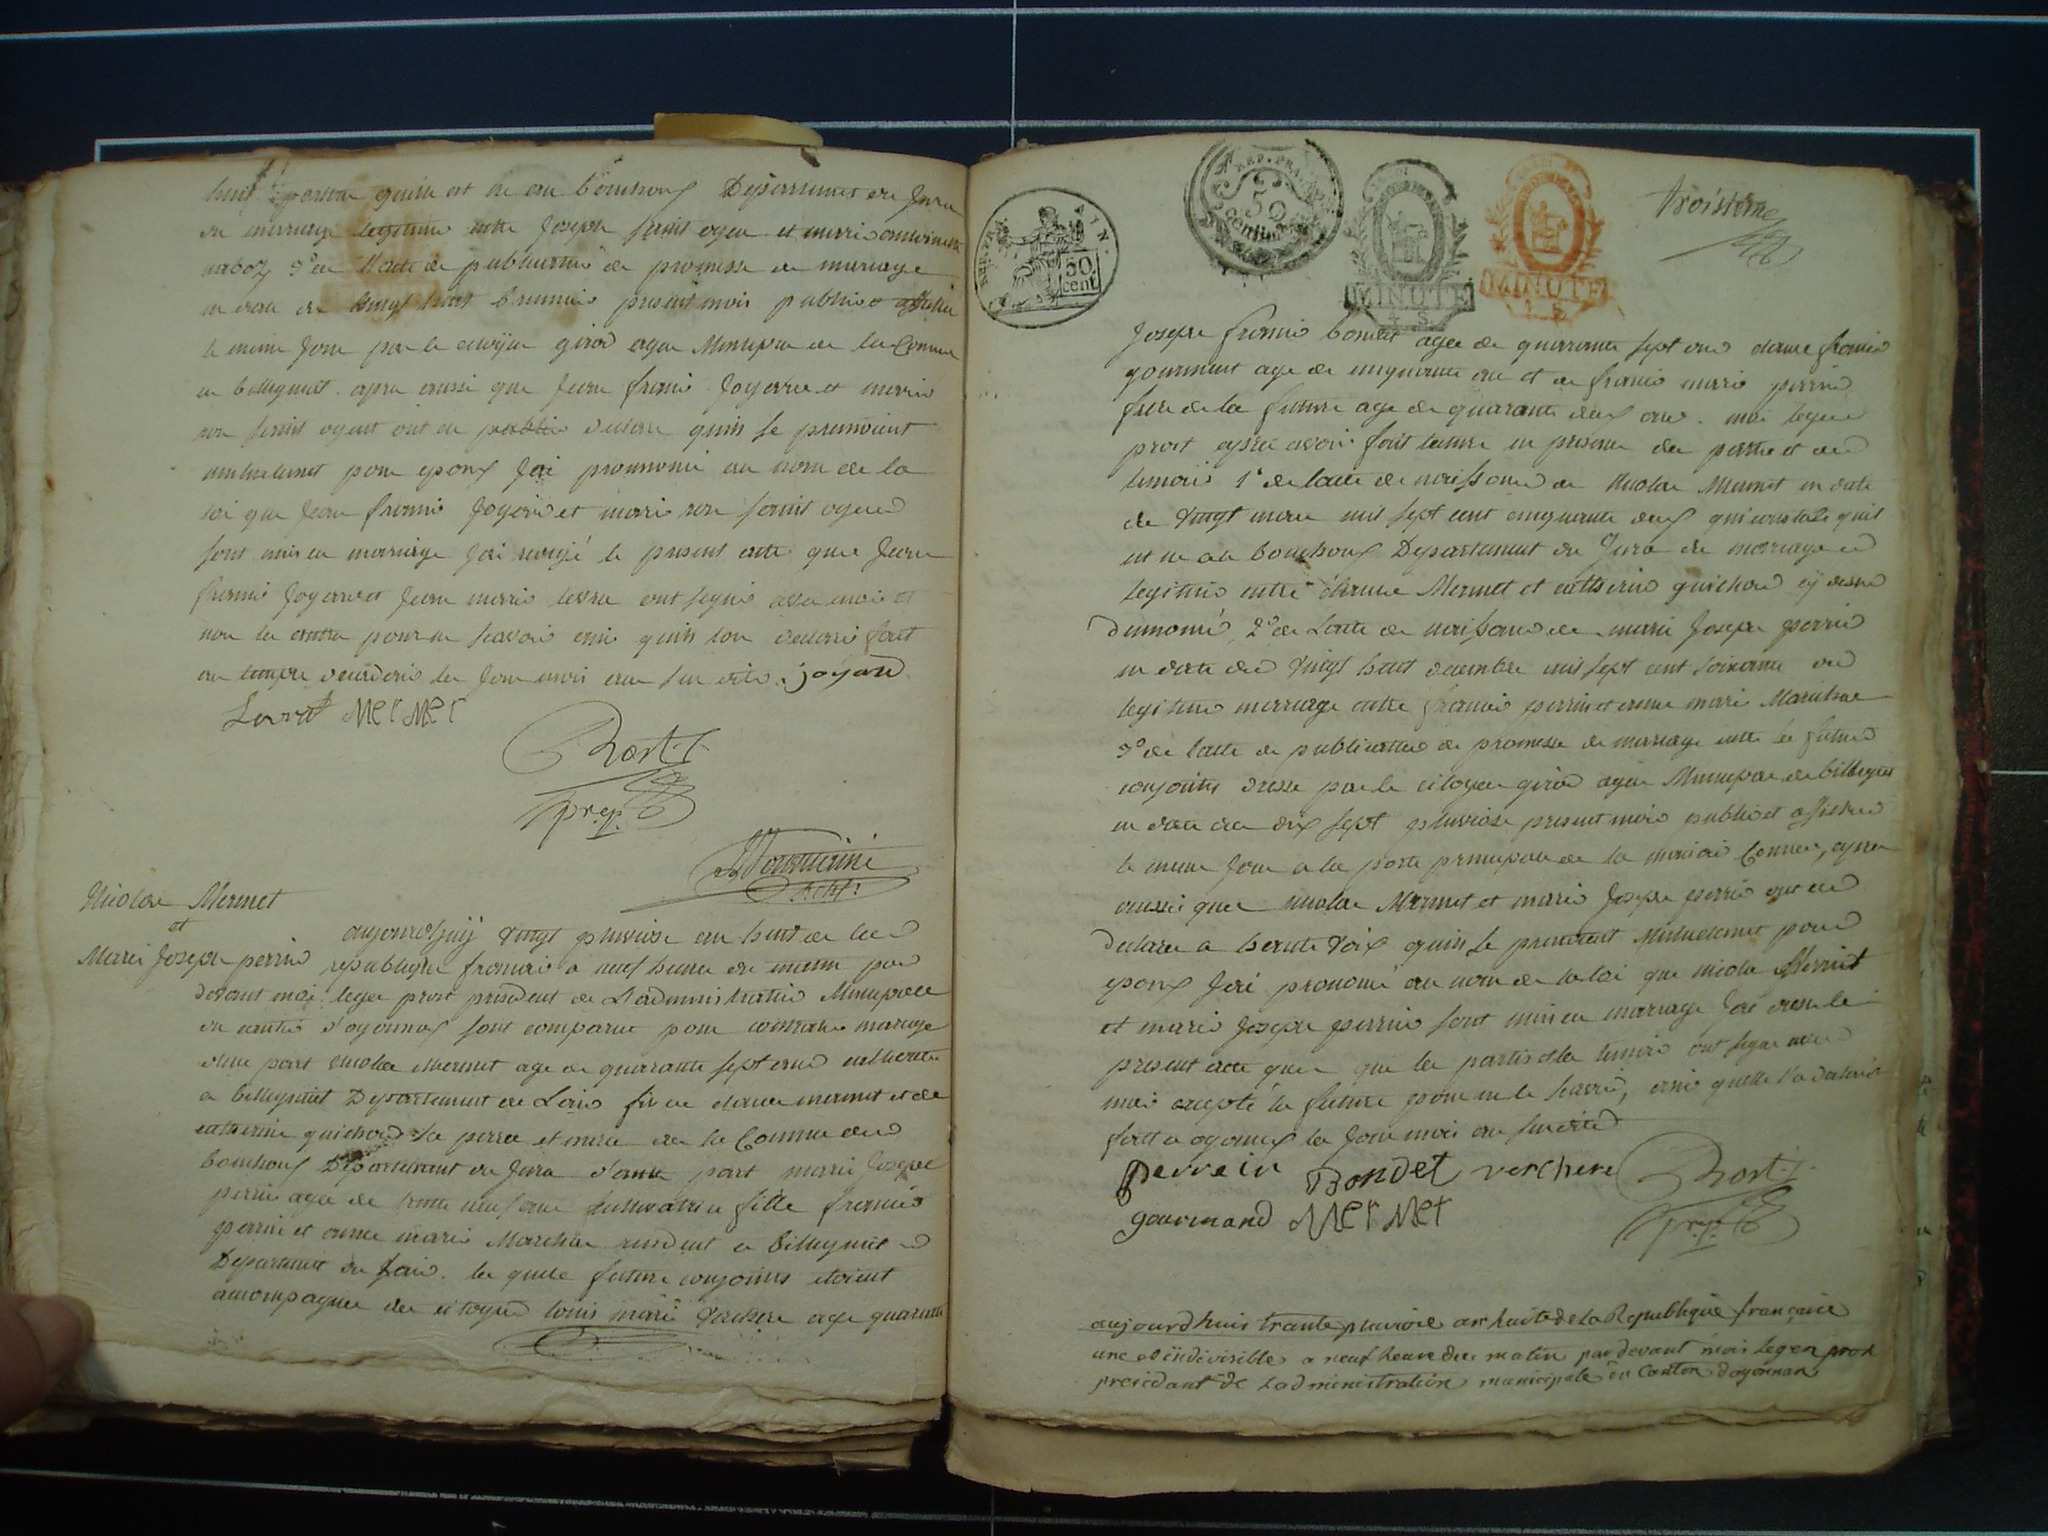 du mariage legitime entre Joseph
3° de l'acte de publication de promesse de mariage
en date du vingt huit brumaire present mois publié et affiché
le meme Jour par le citoyen girod agent Municipal de la Commune
de bellignat. apres aussi que Jean francoi Joyard et marie
ont eu declaré quils se prenoient
mutuelement pour epoux Jai prononcé au nom de la
loi que Jean francoi Joyard et marie
sont unis en mariage Jai redigé le present acte que Jean
non les autres pour ne scavoir ainsi quils lon declaré fait
au temple decadaire les Jour mois et an sus dits. joyard
Lavat MerMet
Rost
pres.
Nicolas Mermet
et
Marie Joseph perrin
aujourdhuy vingt pluviose an huit de la
republique francaise a neuf heure du matin par
devant moi leger prost president de Ladministration Municipale
du canton d'oyonnax sont comparus pour contracter mariage
d'une part nicolas mermet age de quarante sept ans
a bellignat Departement de Lain fils de claude mermet et de
catherine guichon ses pere et mere de la Commune de
bouchoux Departement du Jura d'autre part marie Joseph
perrin agée de trente neuf ans fille francois
perrin et anne marie Marechal resident a bellignat
Departement de Lain. les quels futurs conjoints etoient
accompagnes des citoyens louis marie Verchere age quarante
REP. FRA.
50
cent.
50
centimes
MINUTE
4 S.
MINUTE
4 S.
troisieme
Joseph francois bondet agée de quarante sept ans claude francois
gourmand age de cinquante ans et de francois marie perrin
frere de la future age de quarante deux ans. moi leger
prost apres avoir fait lecture en presence des parties et des
temoins 1° de lacte de naissance de Nicolas Mermet en date
de vingt mars mil sept cent cinquante deux qui constate quil
est ne au bouchoux Departement du Jura du mariage
legitime entre claude Mermet et catherine guichon cy dessus
denomé, 2° de Lacte de naissance de marie Joseph perrin
en date du vingt huit decembre mil sept cent soixante du
legitime mariage entre francois perrin et anne marie Marechal
3° de lacte de publication de promesse de mariage entre les futurs
conjoints dressé par le citoyen girod agent Municipal de bellignat
en date du dix sept pluviose present mois publié et affiché
le meme Jour a la porte principale de la maison Comune, apres
aussi que nicolas Mermet et marie Joseph perrin ont eu
declaré a haute voix quils se prenoient Mutuelement pour
epoux Jai prononcé au nom de la loi que nicolas Mermet
et marie Joseph perrin sont unis en mariage Jai dressé le
present acte que que les parties et les temoins ont signé avec
moi excepté la future pour ne le scavoir, ainsi quelle l'a declaré
fait a oyonnax les Jour mois an susdits
perrein Bondet verchere Rost
gourmand MerMet pres.
aujourdhuis trante pluviose an huite de La Republique française
une et indivisible a neuf heure du matin par devant moi Leger prost
presidant de Ladministration municipale du Canton doyonnax